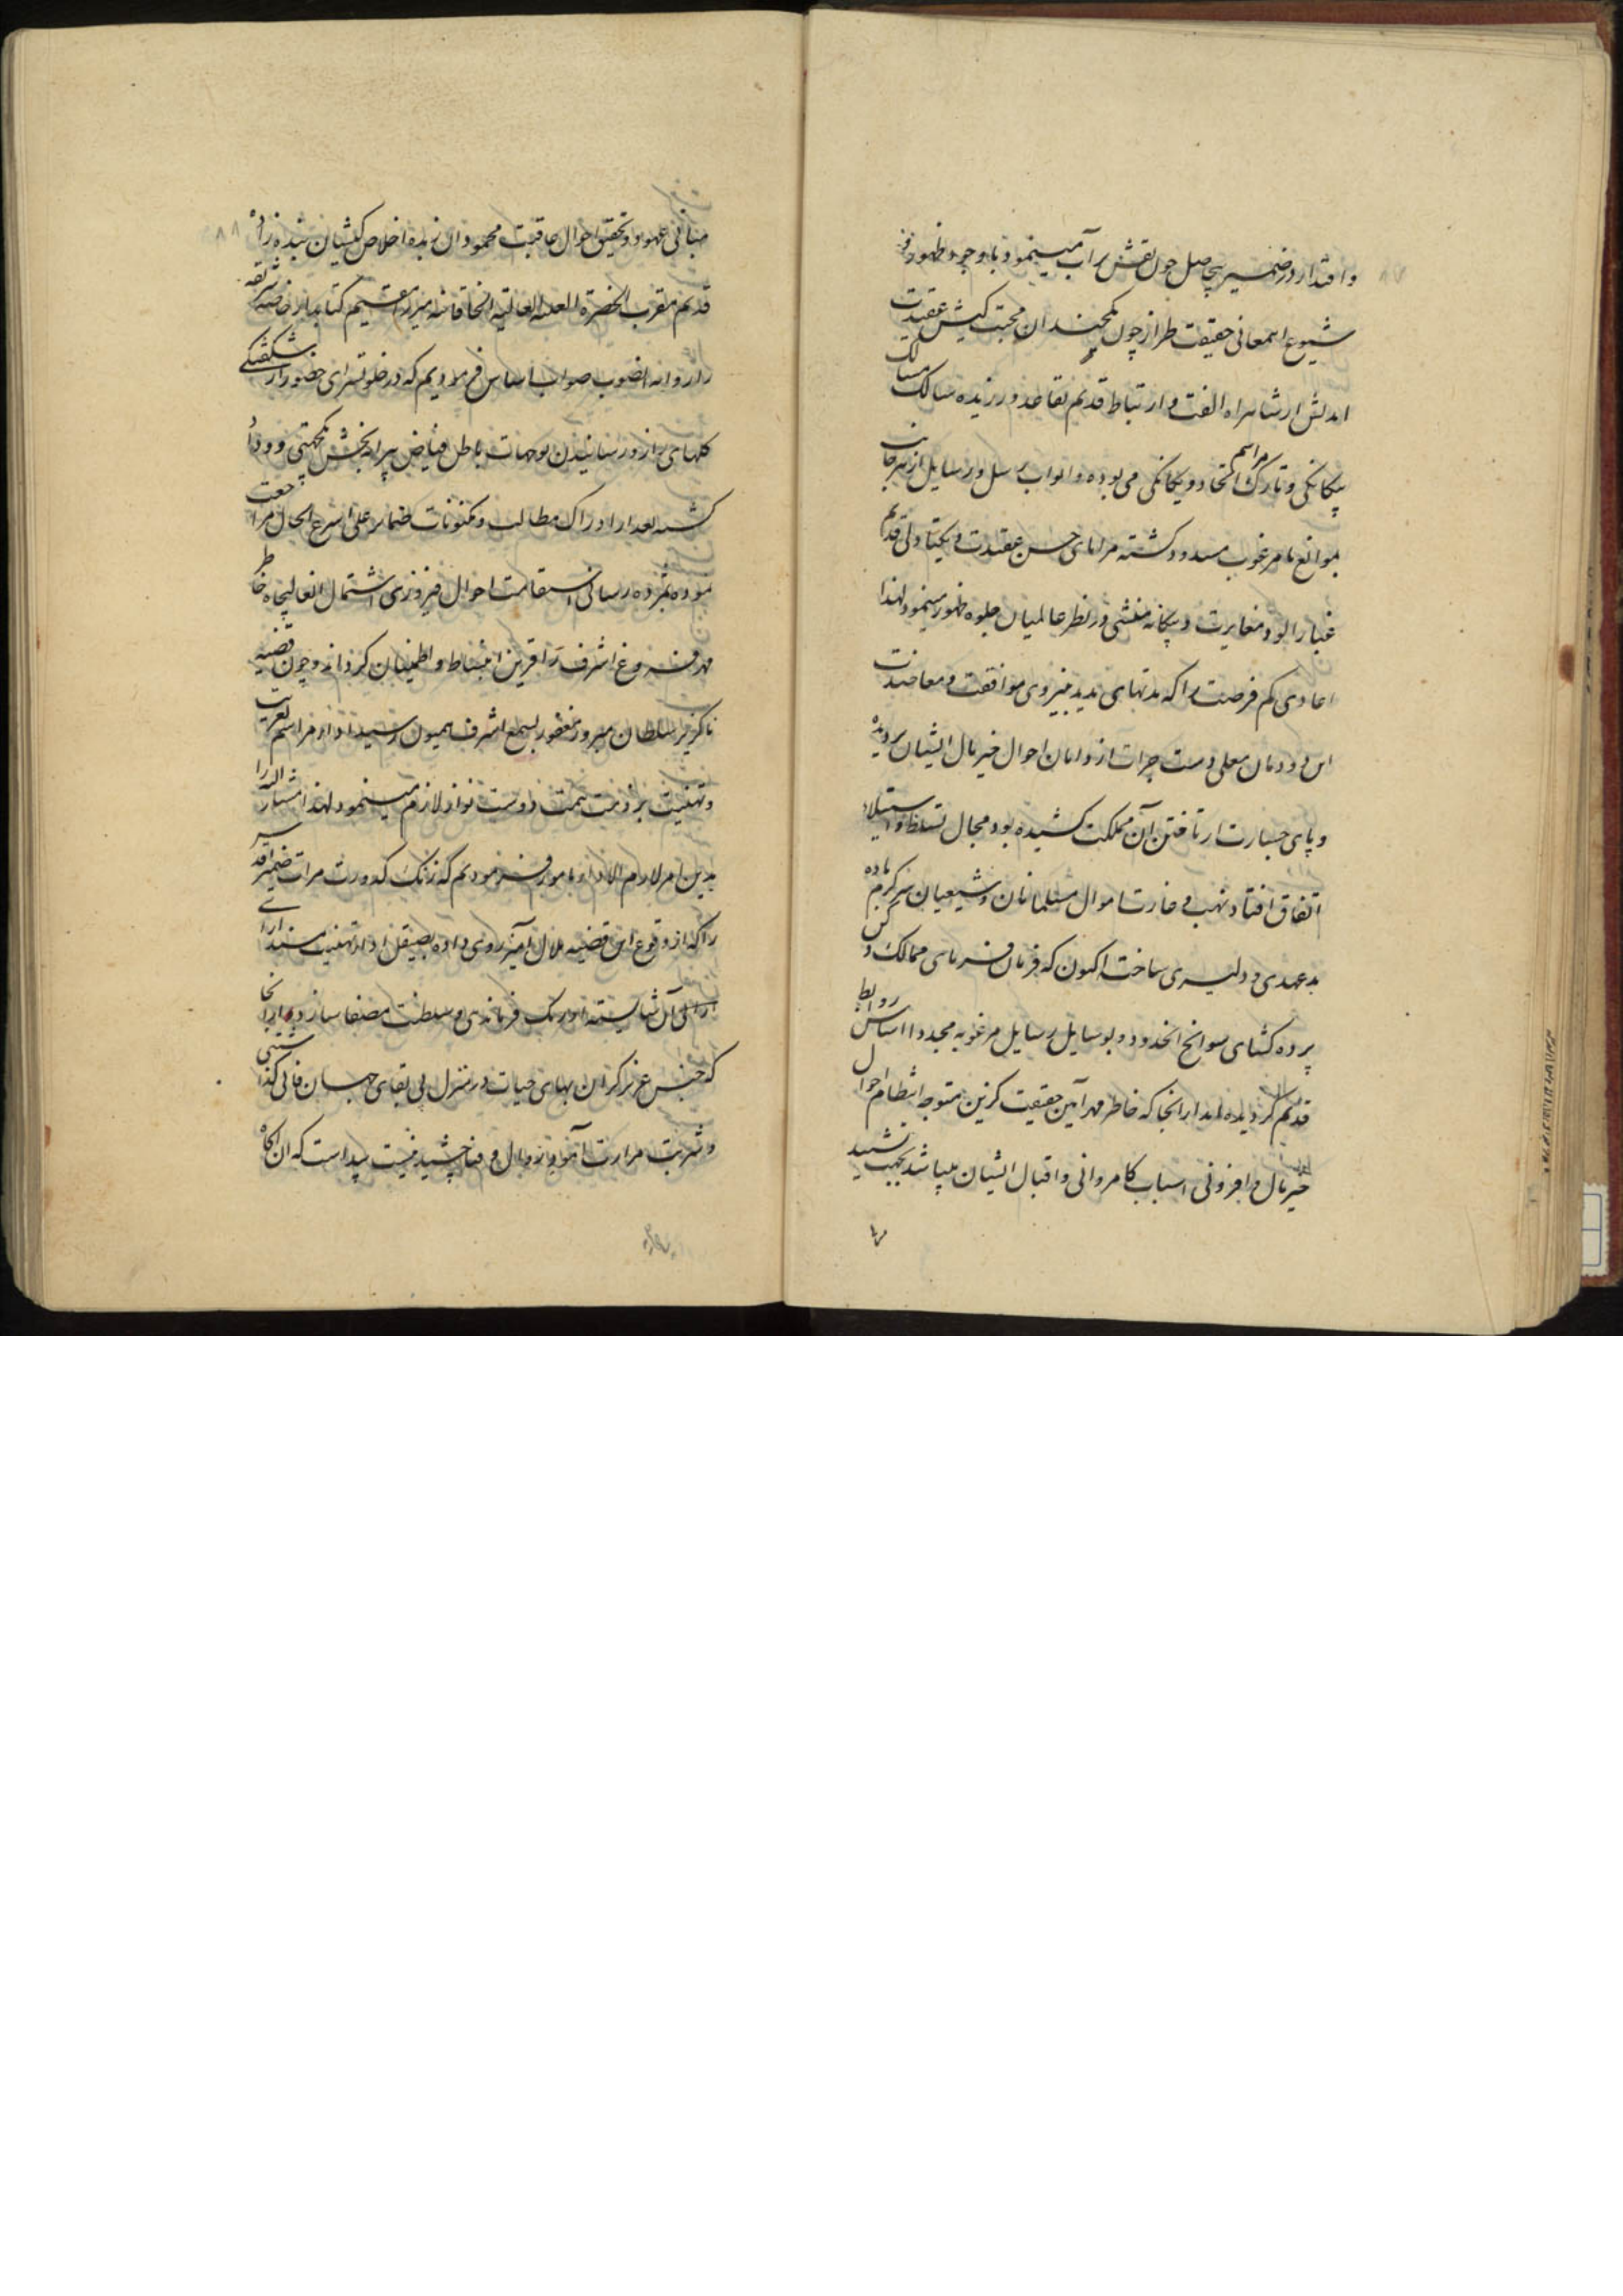 و اقتدار در ضمیر بیحاصل چون نقش بر آب مینمود با وجود ظهور و
شیوع این معانی حقیقت طراز چون نکمچندان محبت کیش عقیدت
اندیش از شاهراه الفت و ارتباط قدیم تقاعد ورزیده سالک مسالک
بیگانگی و تارک مراسم اتحاد و یگانگی می بوده و ابواب رسل و رسایل از هر جانب
بموانع نامرغوب مسدود گشته مرایای حسن عقیدت و یکتا دلی قدیم
غبار آلود مغایرت و بیگانه منشی در نظر عالمیان جلوه ظهور مینمود لهذا
اعادی کم فرصت را که مدتهای مدید بنیروی موافقت و معاضدت
این دودمان معلی دست جرات از دامان احوال خیر مآل ایشان بریده
و پای جسارت از تافتن آن مملکت کشیده بود مجال تسلط و استیلاء
اتفاق افتاد و نهب و غارت اموال مسلمانان و شیعیان سرگرم باده
بدعهدی و دلیری ساخت اکنون که فرمان فرمای ممالک دکن
پرده گشای سوانح انحدود و بوسایل رسایل مرغوبه مجددا اساس روابط
قدیم گردیده اند از آنجا که خاطر مهر آیین حقیقت گزین متوجه انتظام احوال
خیر مآل و افزونی اسباب کامروانی و اقبال ایشان میباشد بجهت تشیید
مبانی عهود و تحقیق احوال عاقبت محمود آن زبده اخلاص کیشان بنده زاده
قدیم مقرب الحضرة العلیه العالیه الخاقانیه میرزا مقیم کتابدار خاصه شریفه
را روانه انصوب صواب اساس فرمودیم که در خلوتسرای حضور از شکفتگی
گلهای راز و رسانیدن توجهات باطن فیاض پیرایه بخش یکجهتی و وداد
گشته بعد از ادراک مطالب و مکنونات ضمایر علی اسرع الحال مراجعت
نموده بمژده رسانی استقامت احوال فیروزی اشتمال انعالیجاه خاطر
مهر فروغ اشرف را قرین انبساط و اطمینان گرداند و چون قضیه
ناگزیر سلطان مبرور مغفور بسمع اشرف همیون رسید اداء مراسم تعزیت
و تهنیت بر ذمت همت دوست نواز لازم مینمود لهذا مشار الیه را
بدین امر لازم الاداء مامور فرمودیم که زنگ کدورت مرات ضمیر
را که از وقوع این قضیه ملال آمیز روی داده بصیقل اداء تهنیت مسند آرای
آرائی آن شایسته اورنگ فرماندهی و سلطنت مصفا سازد و از آنجا
که جنس عزیز گران بهای حیات در منزل بی بقای جهان فانی گذاشتنی
و شربت مرارت آمود زوال و فنا چشیدنیست پیداست که آن آگاه